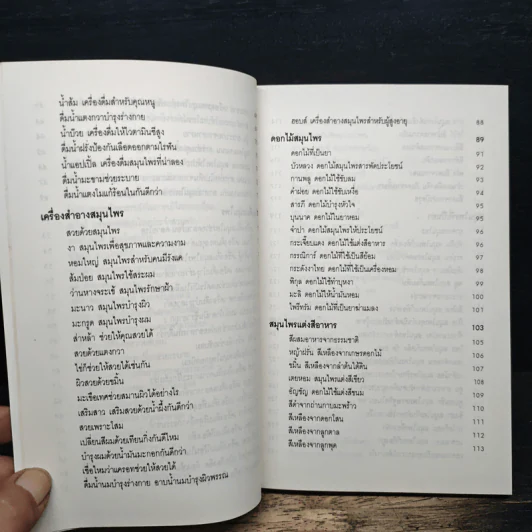 น้ำส้ม เครื่องดื่มสำหรับคุณหนู
น้ำแตงกวาบำรุงร่างกาย
น้ำบ๊วย เครื่องดื่มให้ไวตามินซีสูง
ดื่มน้ำฝรั่งป้องกันเลือดออกตามไรฟัน
น้ำแอปเปิ้ล เครื่องดื่มสมุนไพรที่น่าลอง
ดื่มน้ำมะขามช่วยระบาย
ดื่มน้ำแตงโมแก้ร้อนในกันดีกว่า
เครื่องสำอางสมุนไพร
สวยด้วยสมุนไพร
งา สมุนไพรเพื่อสุขภาพและความงาม
หอมใหญ่ สมุนไพรสำหรับคนมีรังแค
ส้มป่อย สมุนไพรใช้สระผม
ว่านหางจระเข้ สมุนไพรรักษาฝ้า
มะนาว สมุนไพรบำรุงผิว
มะกรูด สมุนไพรบำรุงผม
ส่าหล้า ช่วยให้คุณสวยได้
สวยด้วยแตงกวา
ไข่ก็ช่วยให้สวยได้เช่นกัน
ผิวสวยด้วยขมิ้น
มะเขือเทศช่วยสมานผิวได้อย่างไร
เสริมสาว เสริมสวยด้วยน้ำผึ้งกันดีกว่า
สวยเพราะโสม
เปลี่ยนสีผมด้วยเทียนกิ่งกันดีไหม
บำรุงผมด้วยน้ำมันมะกอกกันดีกว่า
เชื่อไหมว่าแครอทช่วยให้สวยได้
ดื่มน้ำนมบำรุงร่างกาย อาบน้ำนมบำรุงผิวพรรณ
ฮอบส์ เครื่องสำอางสมุนไพรสำหรับผู้สูงอายุ 88
ดอกไม้สมุนไพร 89
ดอกไม้ที่เป็นยา 91
บัวหลวง ดอกไม้สมุนไพรสารพัดประโยชน์ 92
กานพลู ดอกไม้ใช้ขับลม 93
คำฝอย ดอกไม้ใช้ขับเหงื่อ 94
สารภี ดอกไม้บำรุงหัวใจ 94
บุนนาค ดอกไม้ในยาหอม 94
จำปา ดอกไม้สมุนไพรให้ประโยชน์ 96
กระเจี๊ยบแดง ดอกไม้ใช้แต่งสีอาหาร 96
กรรณิการ์ ดอกไม้ที่ใช้เป็นสีย้อม 96
กระดังงาไทย ดอกไม้ที่ใช้เป็นเครื่องหอม 96
พิกุล ดอกไม้ใช้ทำบุหงา 96
มะลิ ดอกไม้ให้น้ำมันหอม 100
ไพรีทรัม ดอกไม้ที่เป็นยาฆ่าแมลง 101
สมุนไพรแต่งสีอาหาร 103
สีผสมอาหารจากธรรมชาติ 105
หญ้าฝรั่น สีเหลืองจากเกษรดอกไม้ 106
ขมิ้น สีเหลืองจากลำต้นใต้ดิน 107
เตยหอม สมุนไพรแต่งสีเขียว 108
อัญชัญ ดอกไม้ใช้แต่งสีขนม 109
สีดำจากถ่านกาบมะพร้าว 110
สีเหลืองจากดอกโสน 111
สีเหลืองจากลูกตาล 112
สีเหลืองจากลูกพุด 113